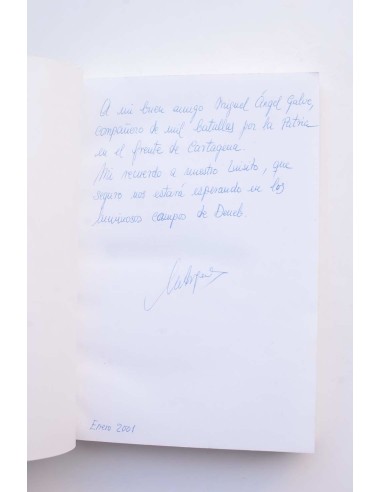 A mi buen amigo Miguel Ángel Galve,
compañero de mil batallas por la Patria
en el frente de Cartagena.
Mi recuerdo a nuestro Luisito, que
seguro nos estará esperando en los
luminosos campos de
Enero 2001